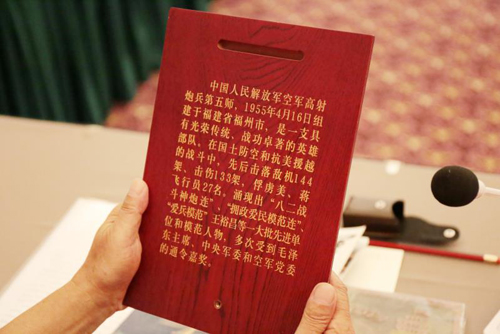 中国人民解放军空军高射
炮兵第五师，1955年4月16日组
建于福建省福州市，是一支具
有光荣传统、战功卓著的英雄
部队，在国土防空和抗美援越
的战斗中，先后击落敌机144
架、击伤133架，俘虏美、蒋
飞行员27名，涌现出“八二战
斗神炮连”、“拥政爱民模范连”、
“爱兵模范”王裕昌等一大批先进单
位和模范人物，多次受到毛泽
东主席、中央军委和空军党委
的通令嘉奖。